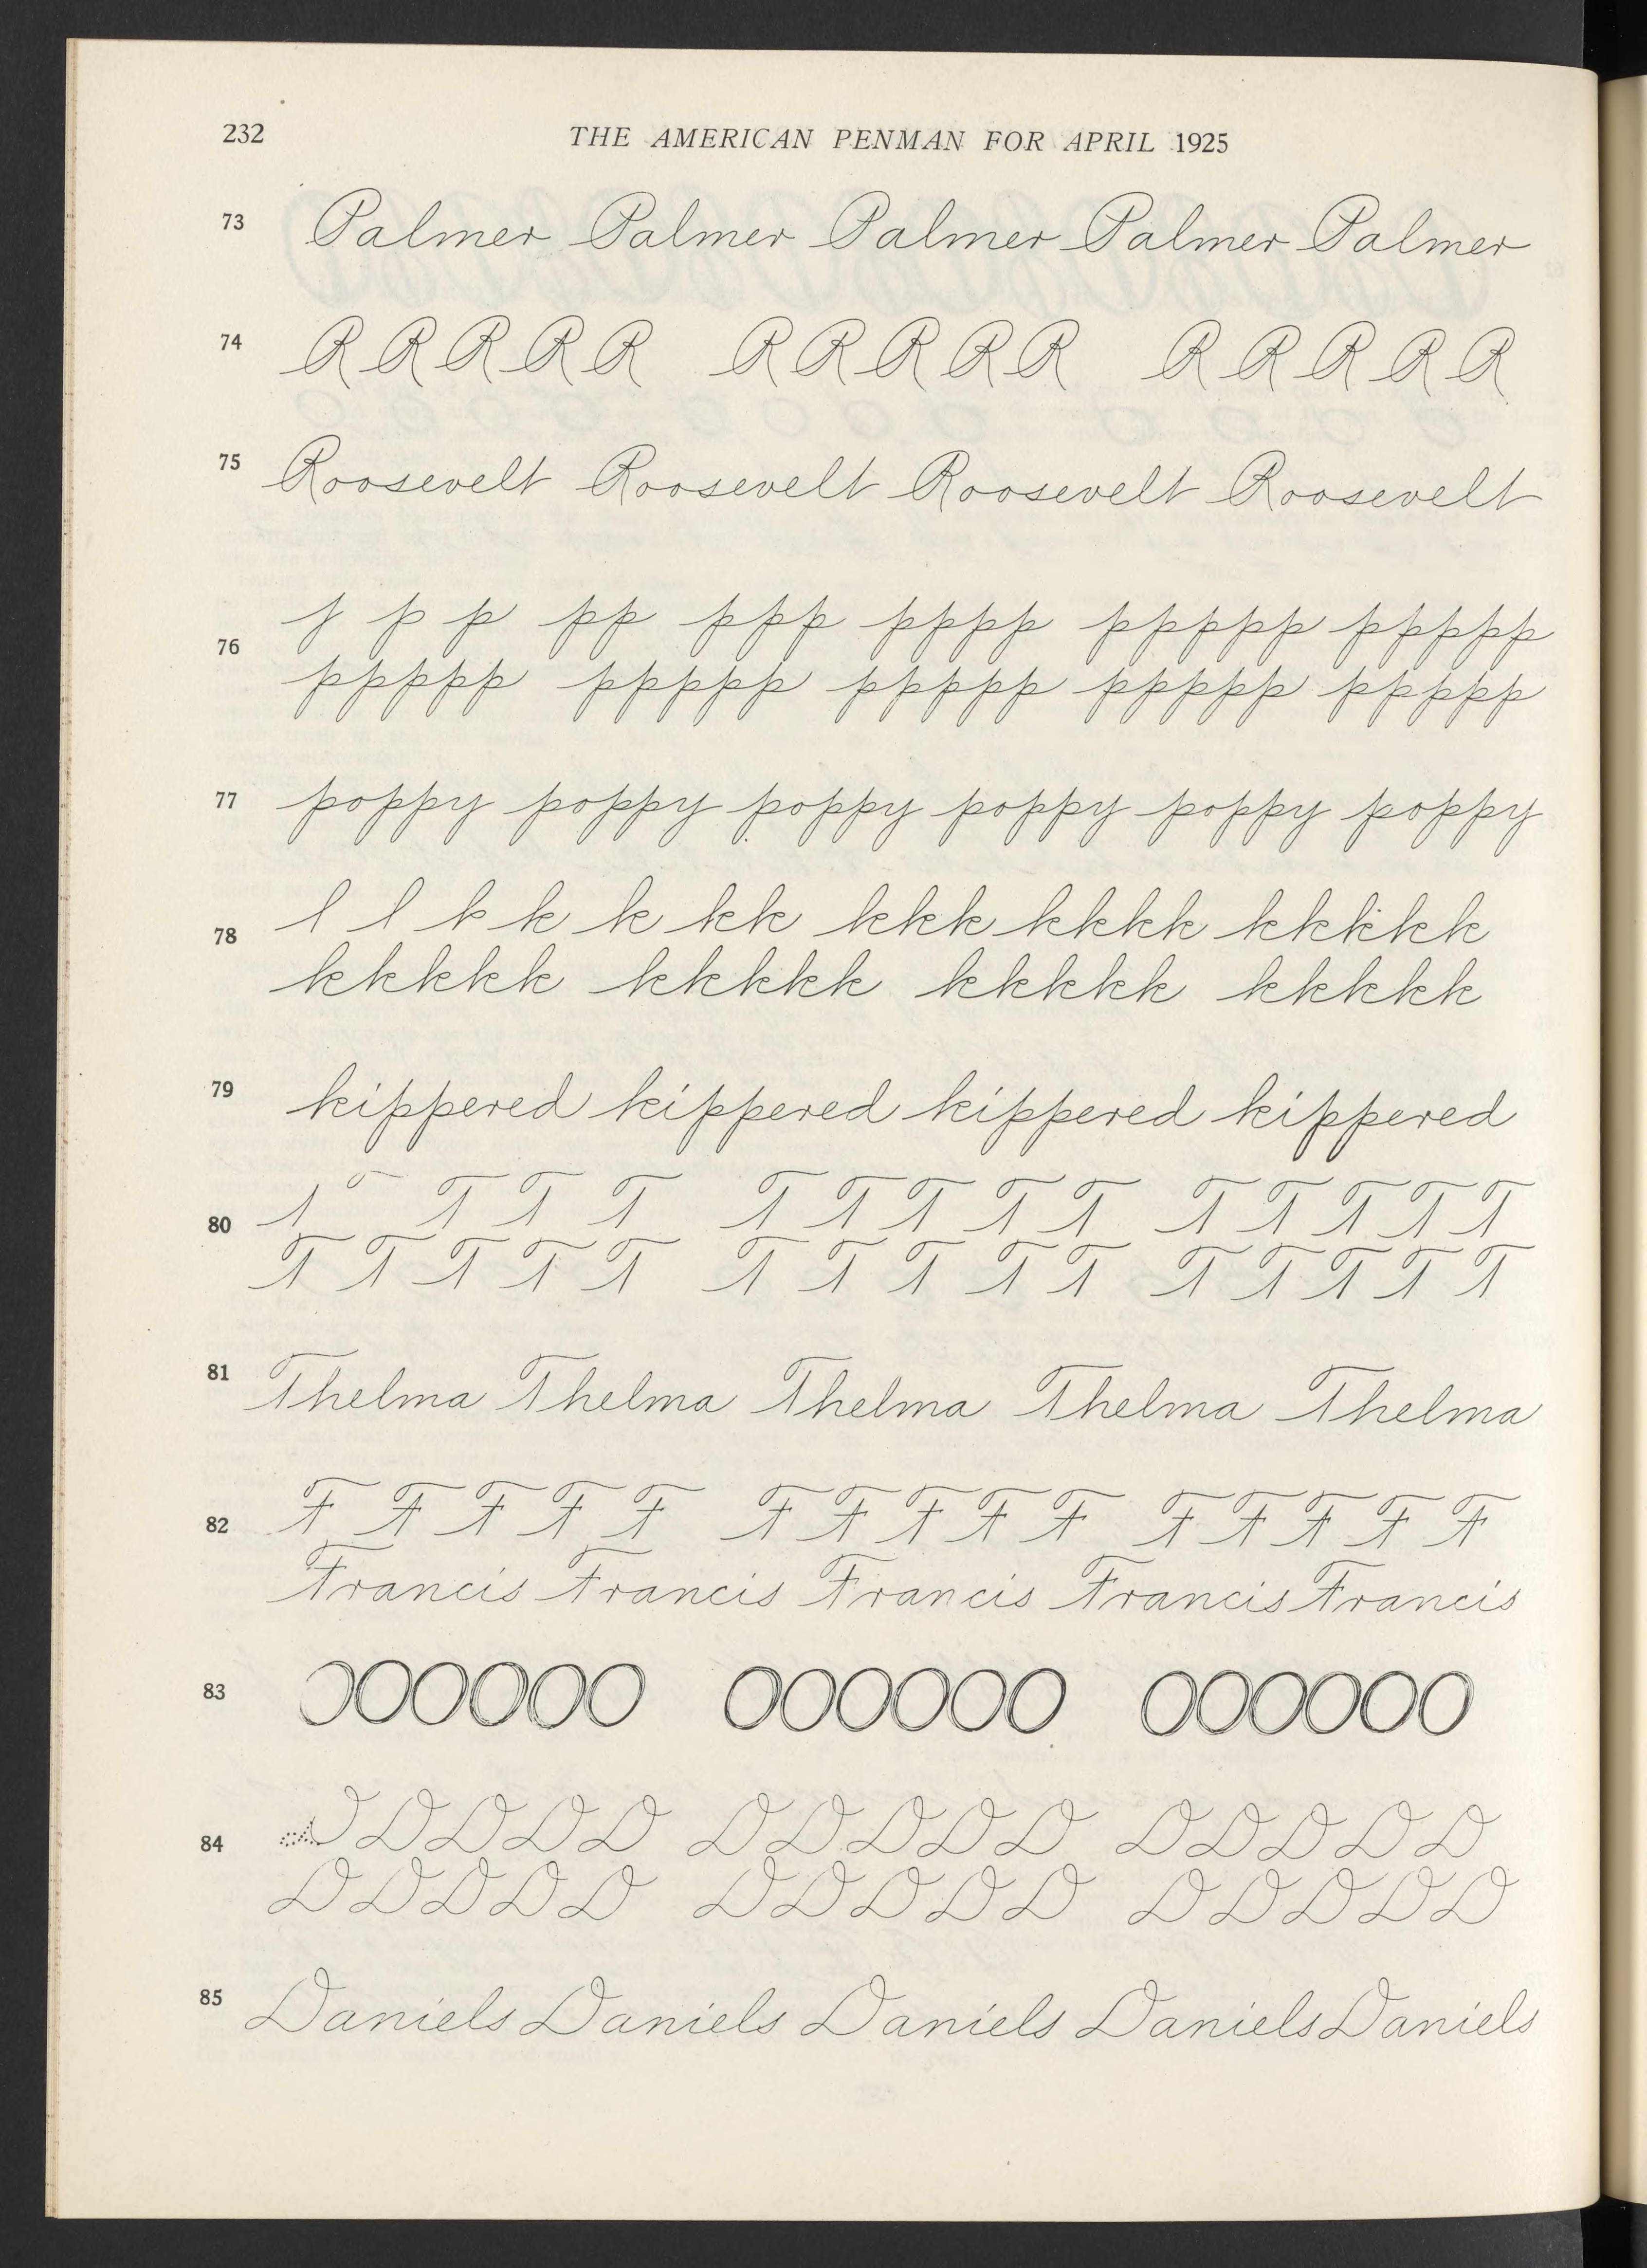 232 THE AMERICAN PENMAN FOR APRIL 1925
73 Palmer Palmer Palmer Palmer Palmer
74 R R R R R R R R R R R R R R R
75 Roosevelt Roosevelt Roosevelt Roosevelt
76 p p pp ppp pppp ppppp ppppp
ppppp ppppp ppppp ppppp ppppp
77 poppy poppy poppy poppy poppy poppy
78 l l k k k kk kkk kkkk kkkkk
kkkkk kkkkk kkkkk kkkkk
79 kippered kippered kippered kippered
80 T T T T T T T T T T T T T
T T T T T T T T T T T T T T T
81 Thelma Thelma Thelma Thelma Thelma
82 F F F F F F F F F F F F F F F
Francis Francis Francis Francis Francis
83 OOOOO OOOOOO OOOOOO
84 D D D D D D D D D D D D D D
D D D D D D D D D D D D D D D
85 Daniels Daniels Daniels Daniels Daniels